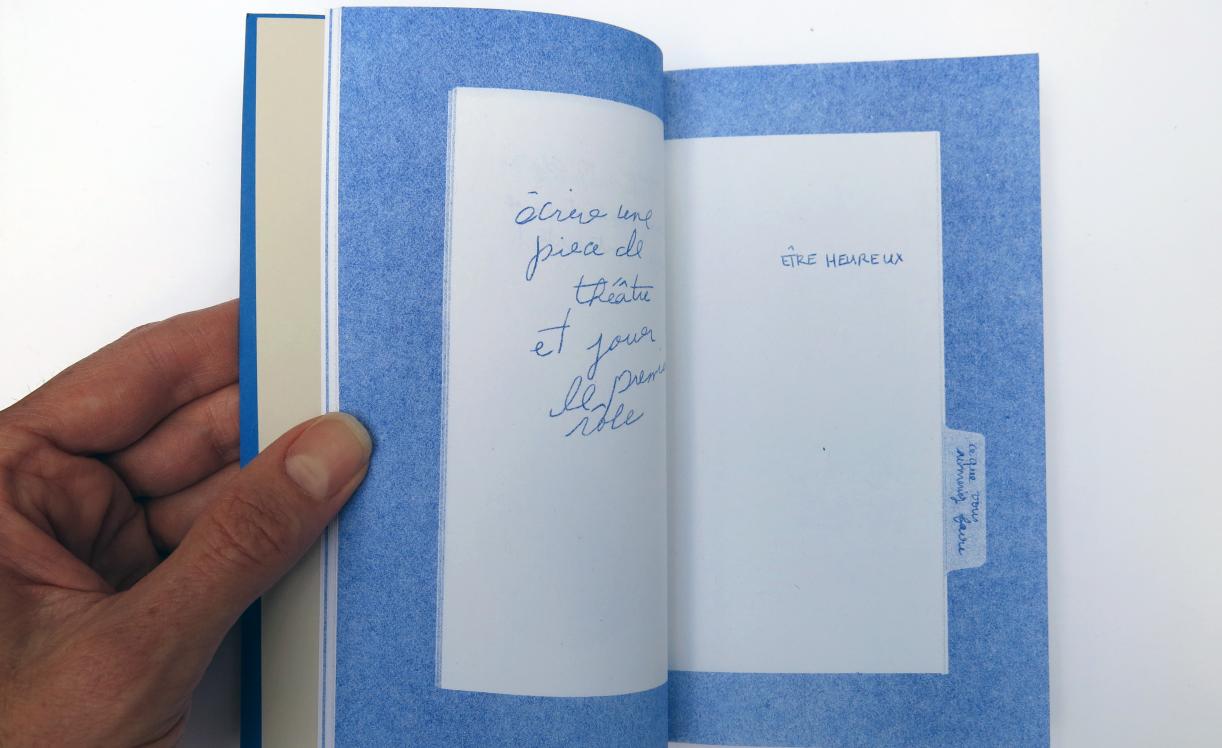 écrire une
piece de
théâtre
et jouer
le premie
rôle
ÊTRE HEUREUX
ce que vous
aimeriez faire